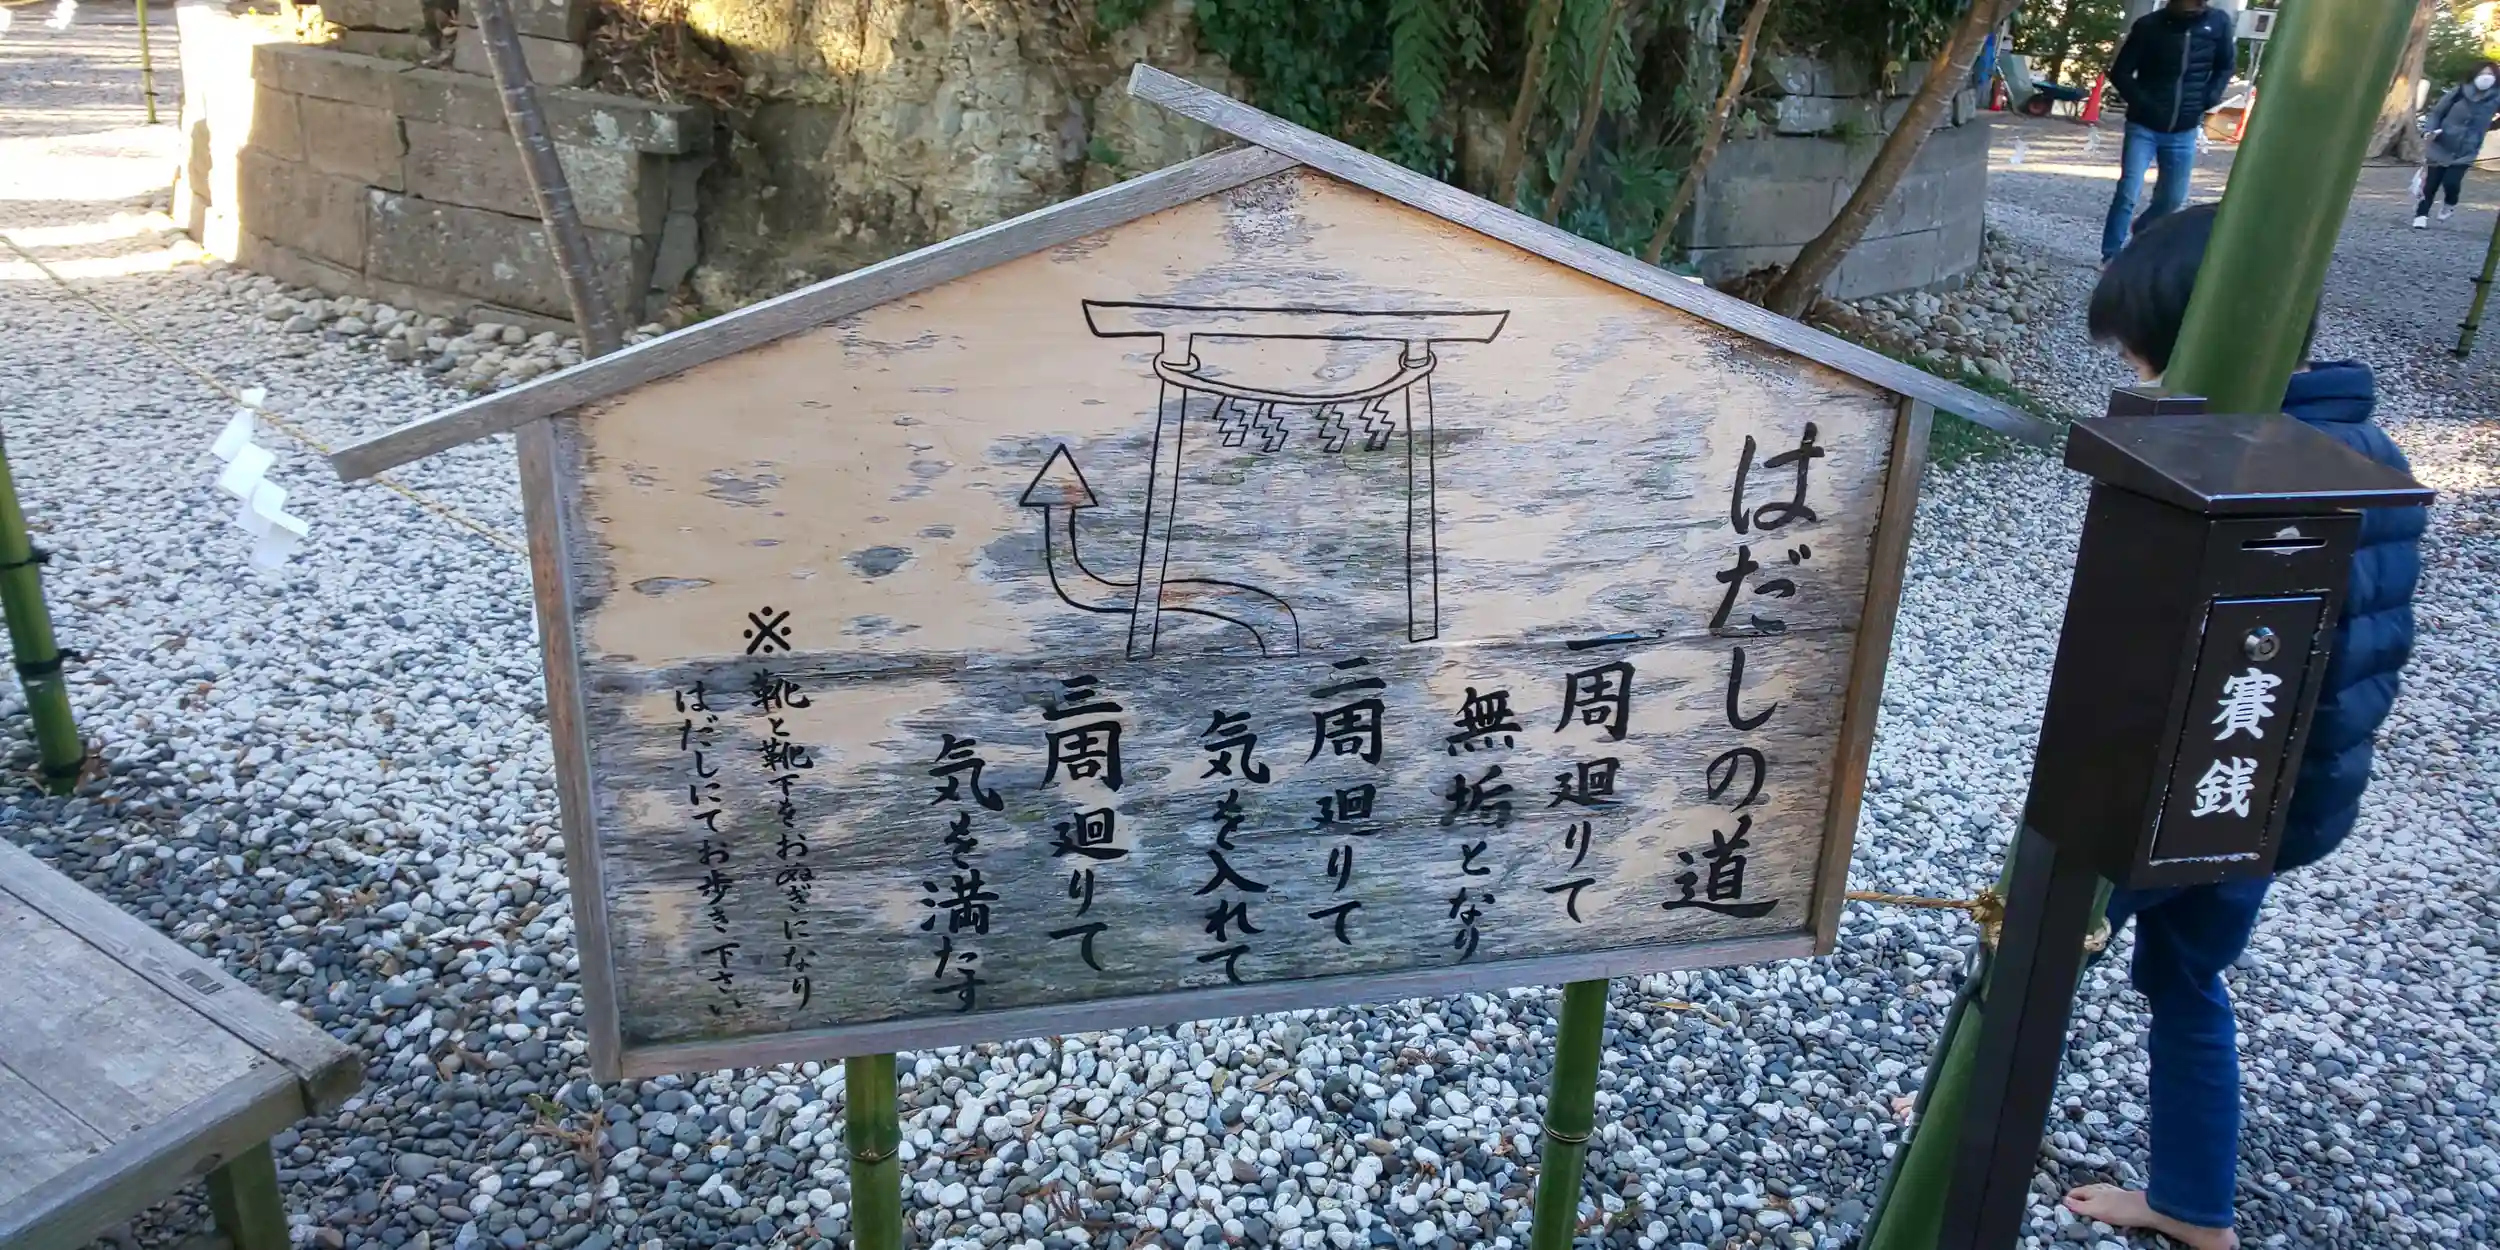 はだしの道
一周廻りて
無垢となり
二周廻りて
気を入れて
三周廻りて
気を満たす
※靴と靴下をおぬぎになり
はだしにてお歩き下さい
賽銭